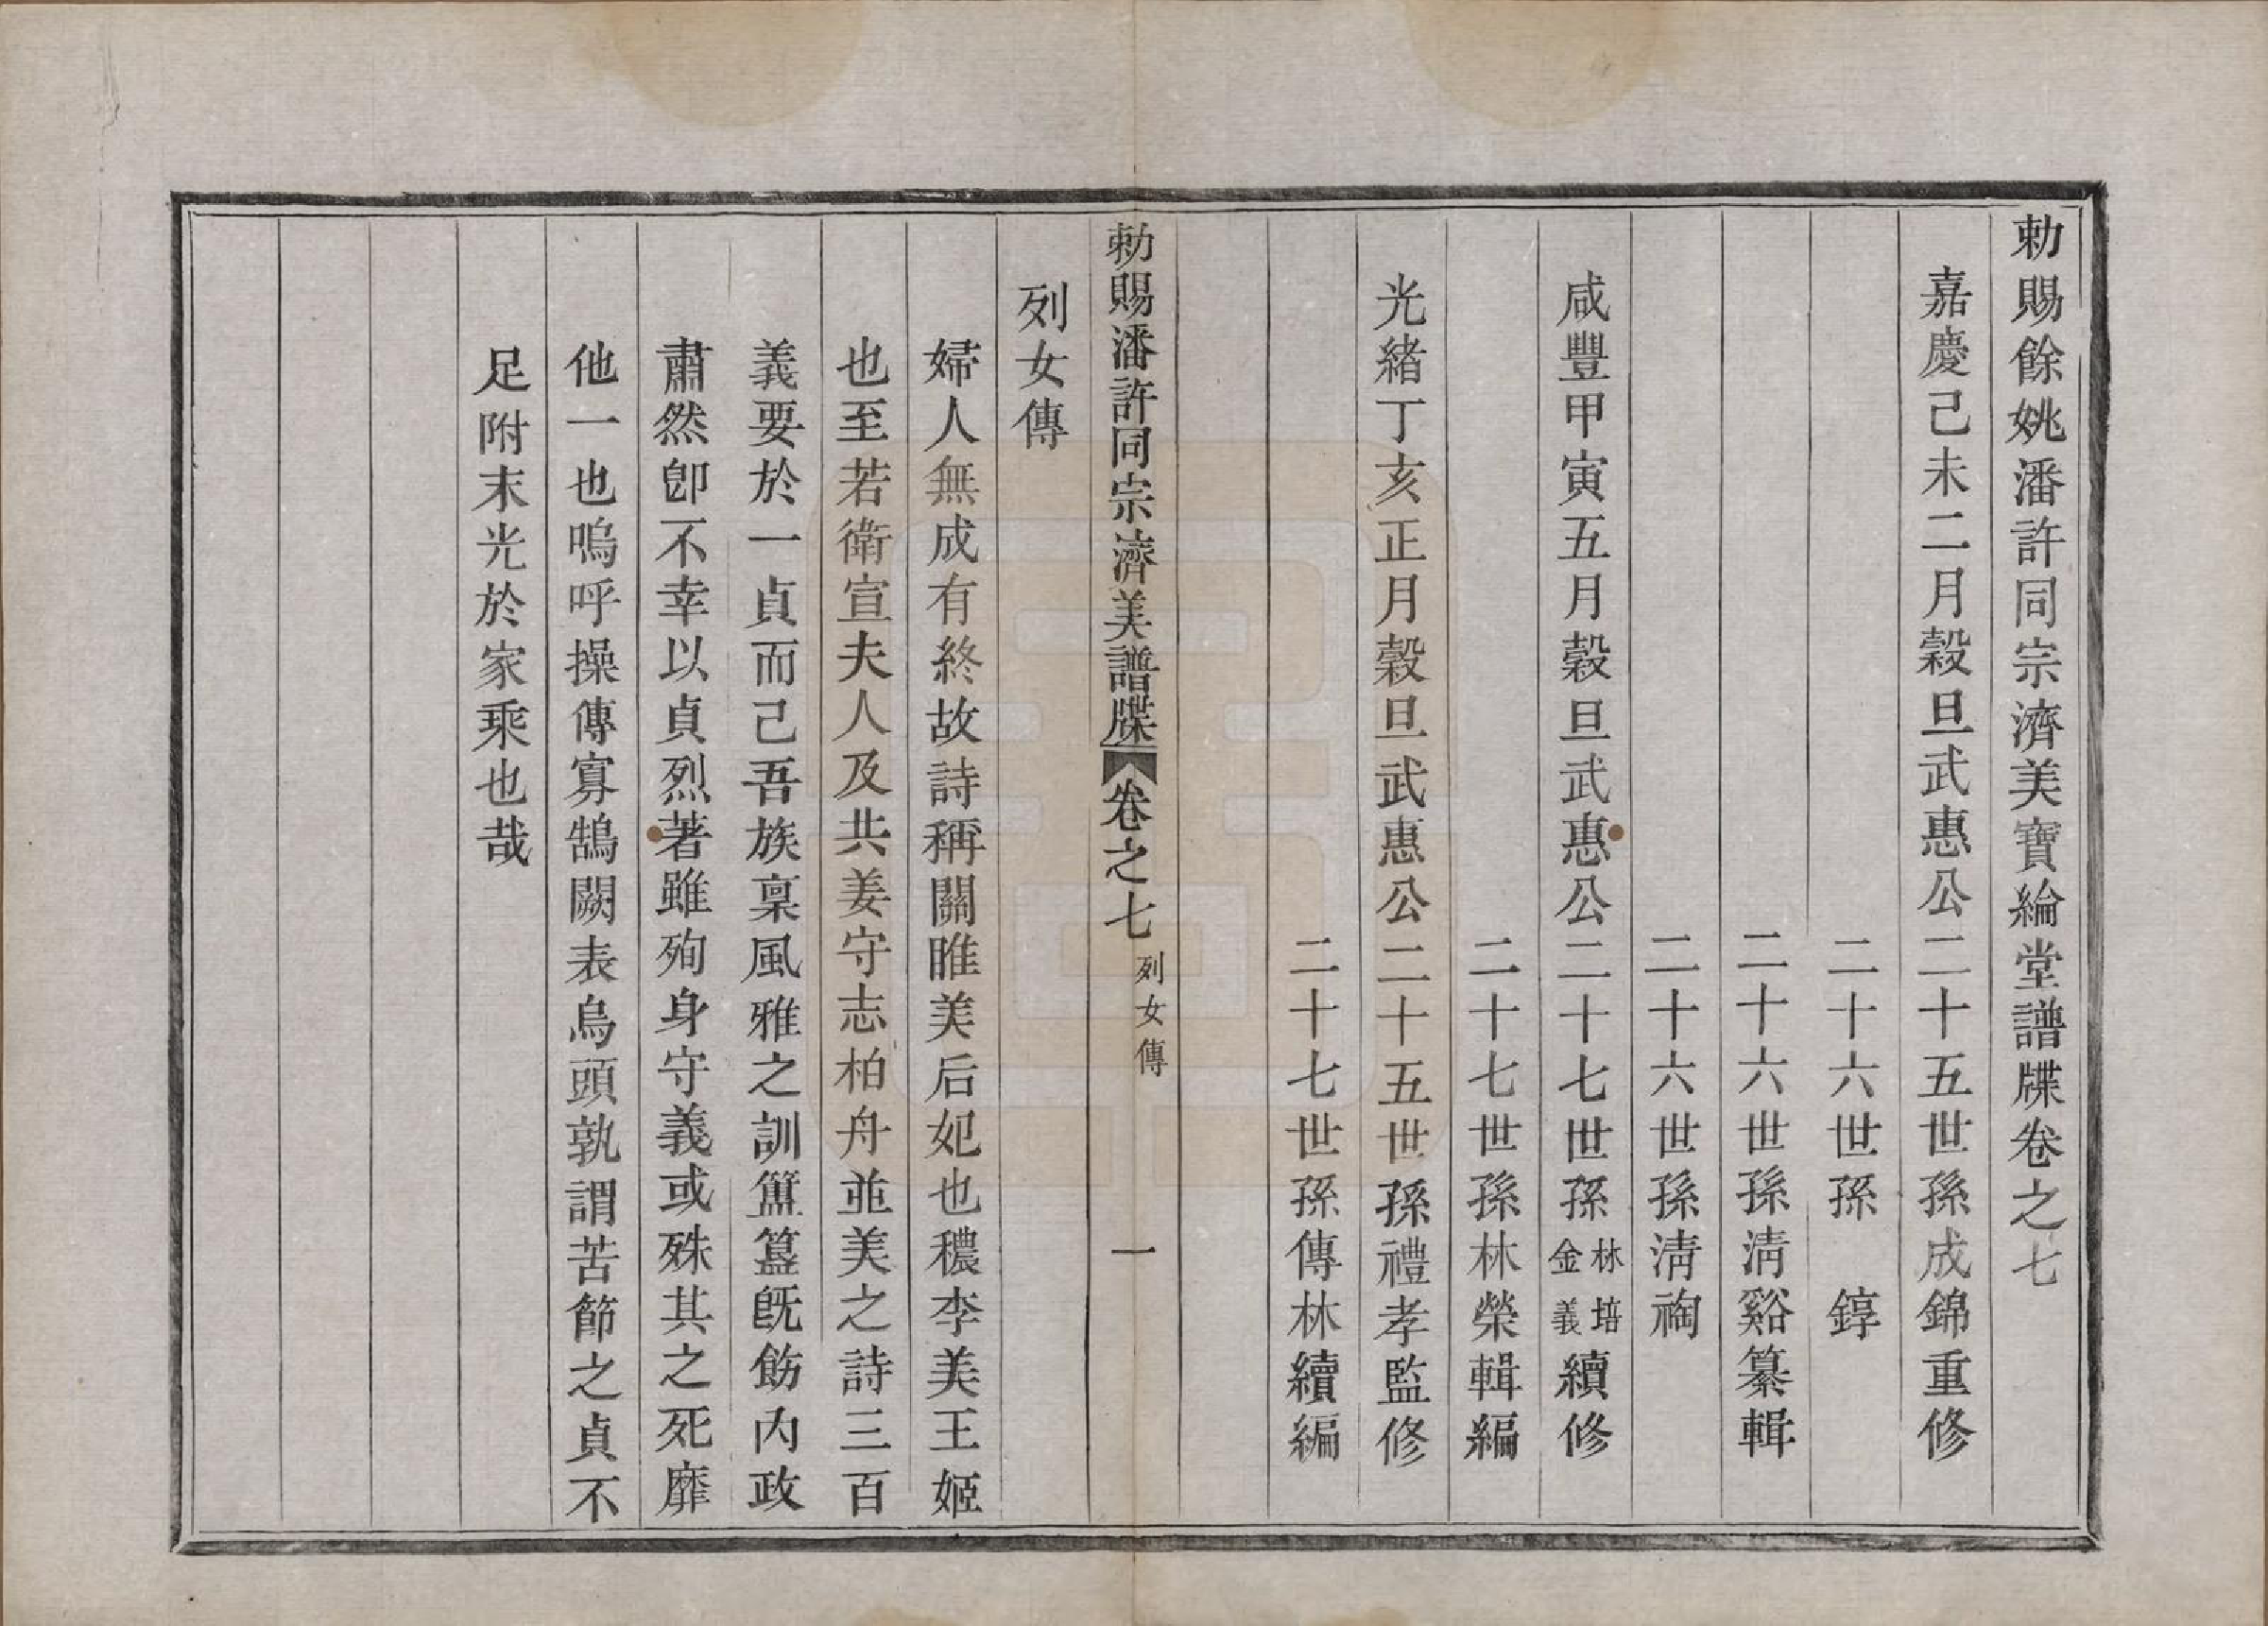 勅賜餘姚潘許同宗濟美寶綸堂譜牒卷之七
嘉慶己未二月穀旦武惠公二十五世孫成錦重修
二十六世孫　錞
二十六世孫淸谿纂輯
二十六世孫淸裪
咸豐甲寅五月穀旦武惠公二十七世孫林培金義續修
二十七世孫林榮輯編
光緒丁亥正月穀旦武惠公二十五世孫禮孝監修
二十七世孫傳林續編
勅賜潘許同宗濟美譜牒　卷之七　列女傳　一
列女傳
婦人無成有終故詩稱關雎美后妃也穠李美王姬
也至若衛宣夫人及共姜守志柏舟並美之詩三百
義要於一貞而己吾族稟風雅之訓簠簋旣飭內政
肅然卽不幸以貞烈著雖殉身守義或殊其之死靡
他一也嗚呼操傳寡鵠闕表烏頭孰謂苦節之貞不
足附末光於家乘也哉